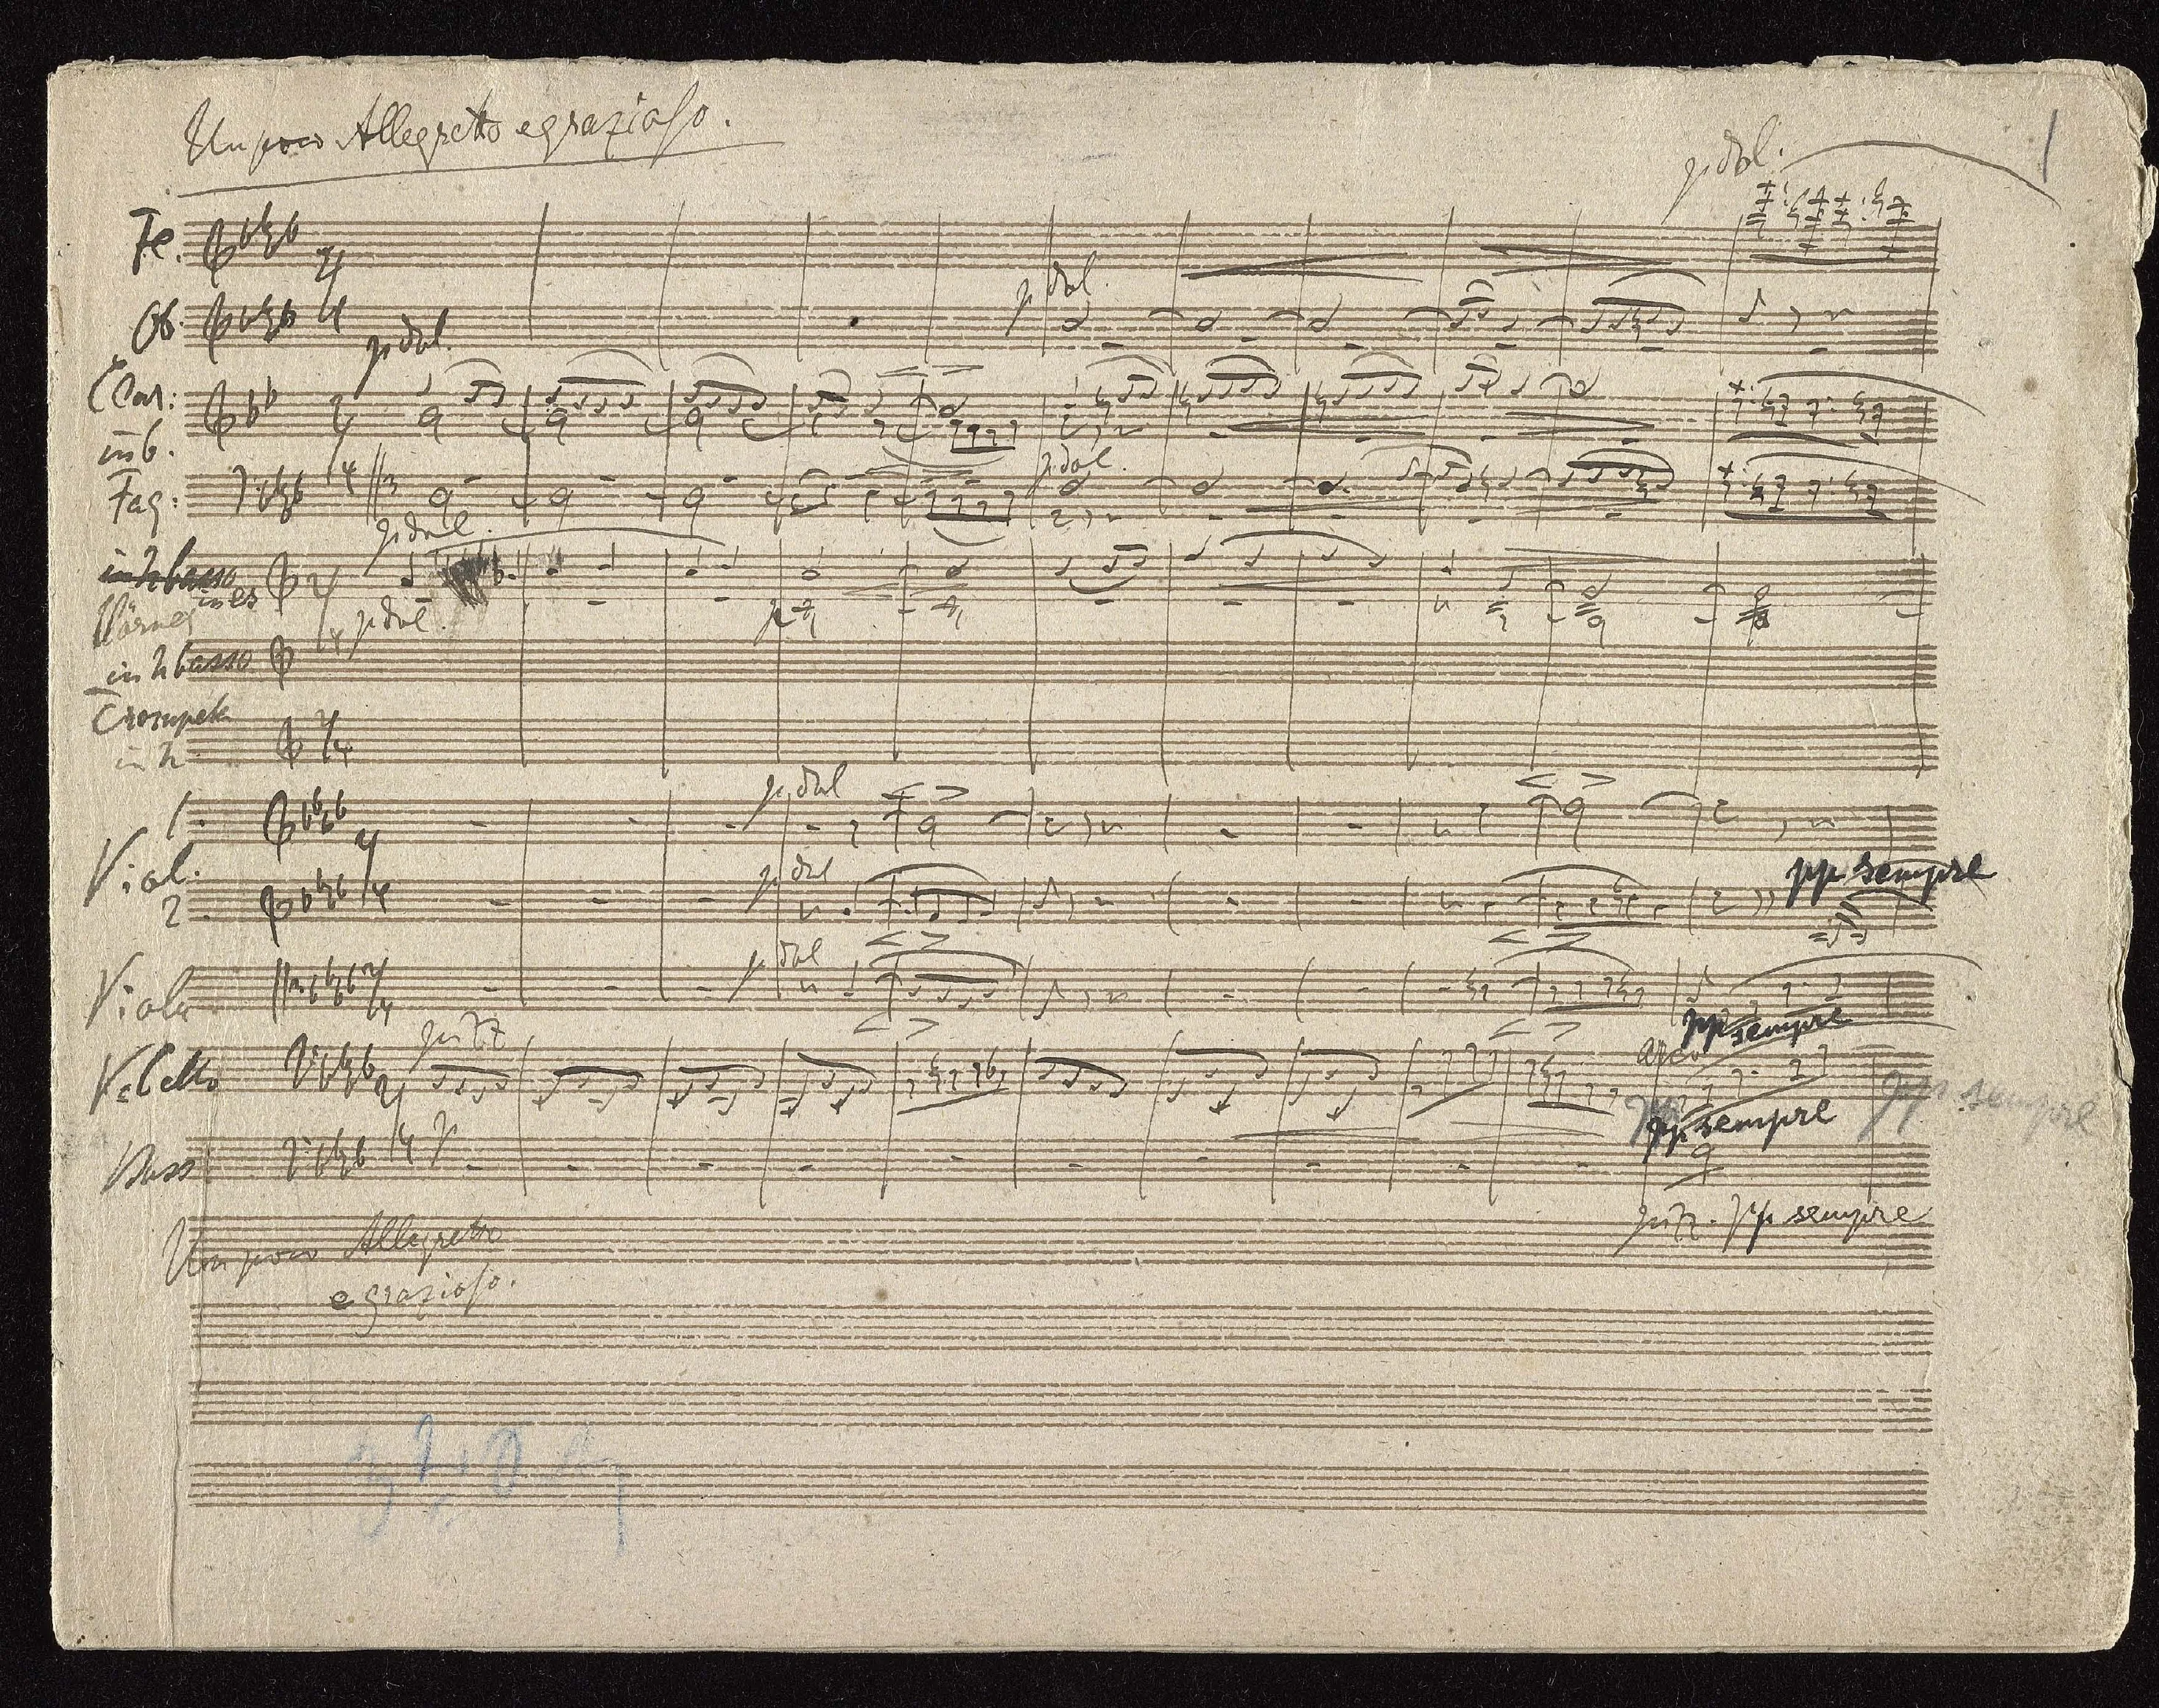 Un poco Allegretto e grazioso.
1
p dol.
Fl.
Ob:
p dol.
p dol.
Clar:
in b.
Fag:
p dol.
p dol.
in h basso
Hörner in es
p dol.
p
in h basso
Trompet
in h
1.
p dol
Viol.
2
p dol
pp sempre
Viola
p dol
pp sempre
Vcello
pizz
arco
pp sempre
pp sempre
Bass
p
pizz. pp sempre
Un poco Allegretto
e grazioso.